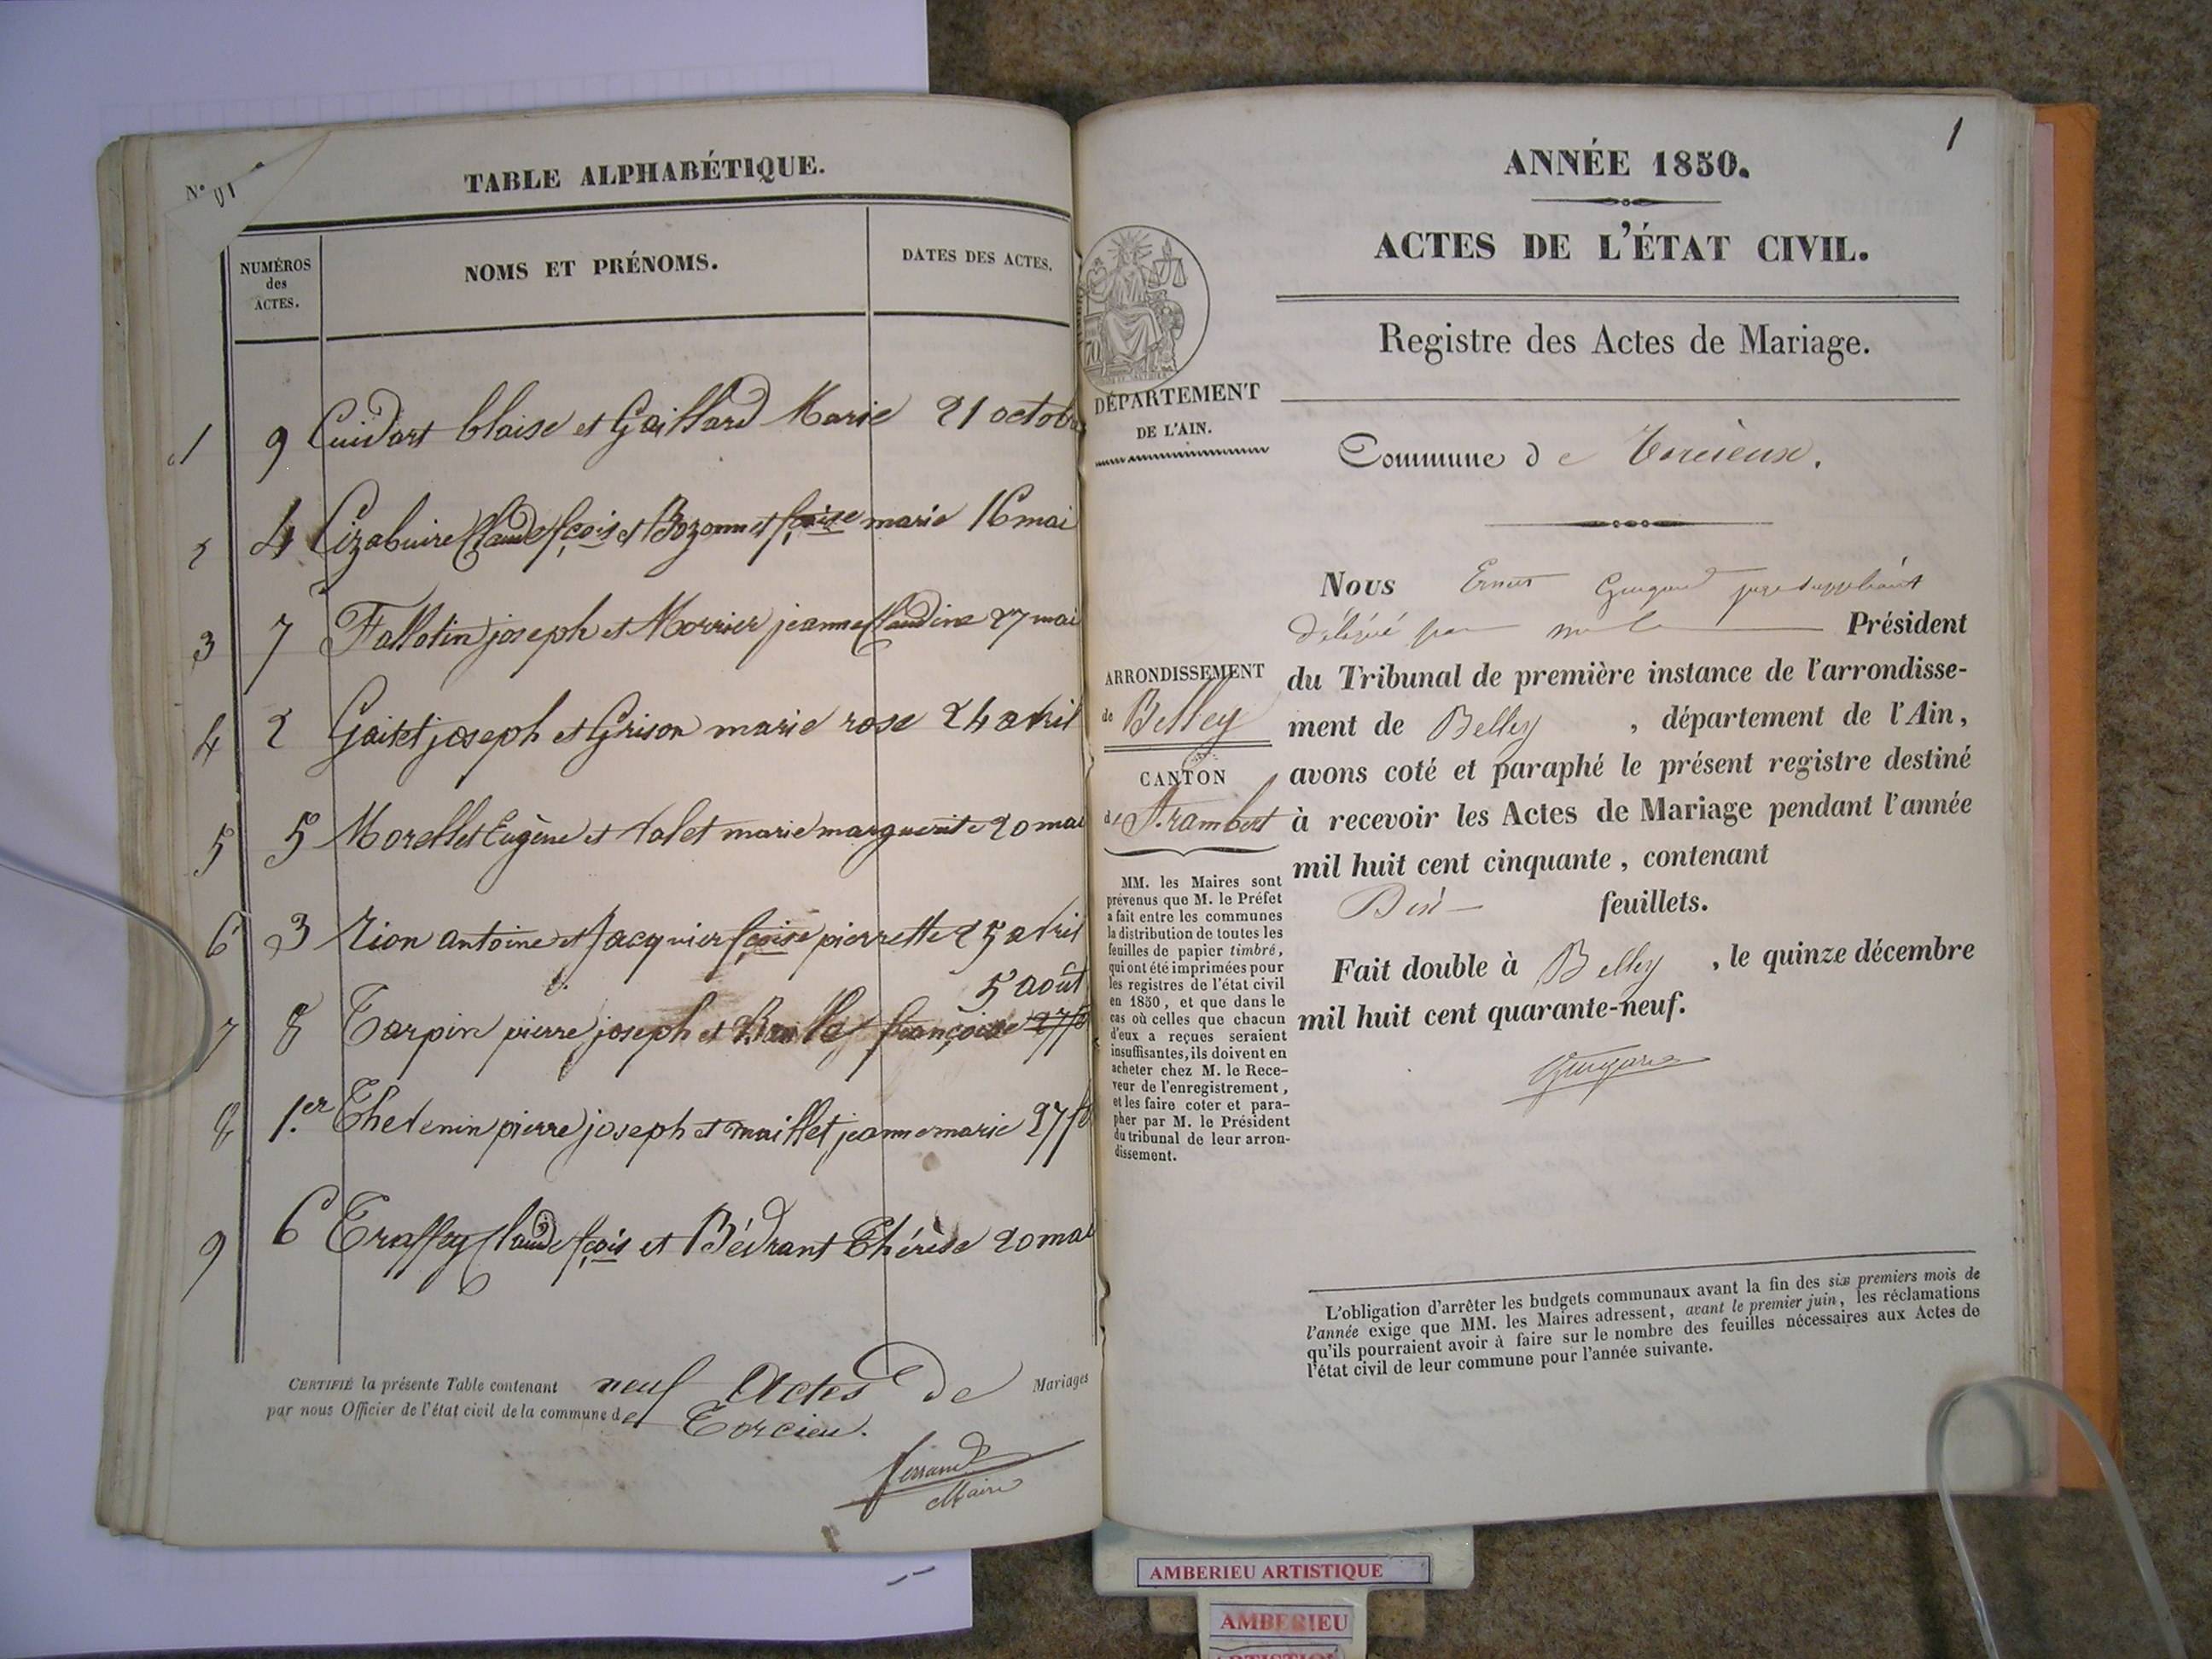 N° 10
TABLE ALPHABÉTIQUE.
NUMÉROS
des
ACTES.
NOMS ET PRÉNOMS.
DATES DES ACTES.
1 9 Cuidart blaise et Gaillard Marie 21 octob
2 4 Cizabuire Claude fçois et Bozonnet fçoise marie 16 mai
3 7 Fallatin joseph et Morrier jeanne Claudine 27 mai
4 2 Gaitet joseph et Grison marie rose 24 avril
5 5 Morellet Eugène et Valet marie marguerite 20 mai
6 3 Rion antoine et Jacquier fçoise pierrette 25 avril
5 août
7 8 Tarpin pierre joseph et françoise
8 1.er Thevenin pierre joseph et maillet jeanne marie 27
9 6 Traffey Claude fçois et Bévrant Thérèse 20 mai
CERTIFIÉ la présente Table contenant neuf Actes de Mariages
par nous Officier de l'état civil de la commune de Torcieu.
ferrand
Maire
1
ANNÉE 1850.
ACTES DE L'ÉTAT CIVIL.
Registre des Actes de Mariage.
DÉPARTEMENT
DE L'AIN.
Commune de Torcieux.
ARRONDISSEMENT
de Belley
CANTON
de St. rambert
MM. les Maires sont
prévenus que M. le Préfet
a fait entre les communes
la distribution de toutes les
feuilles de papier timbré,
qui ont été imprimées pour
les registres de l'état civil
en 1850, et que dans le
cas où celles que chacun
d'eux a reçues seraient
insuffisantes, ils doivent en
acheter chez M. le Rece-
veur de l'enregistrement,
et les faire coter et para-
pher par M. le Président
du tribunal de leur arron-
dissement.
Nous Ernest juge suppléant
délégué par Président
du Tribunal de première instance de l'arrondisse-
ment de Belley , département de l'Ain,
avons coté et paraphé le présent registre destiné
à recevoir les Actes de Mariage pendant l'année
mil huit cent cinquante, contenant
feuillets.
Fait double à Belley , le quinze décembre
mil huit cent quarante-neuf.
L'obligation d'arrêter les budgets communaux avant la fin des six premiers mois de
l'année exige que MM. les Maires adressent, avant le premier juin, les réclamations
qu'ils pourraient avoir à faire sur le nombre des feuilles nécessaires aux Actes de
l'état civil de leur commune pour l'année suivante.
AMBERIEU ARTISTIQUE
AMBERIEU
ARTISTIQUE